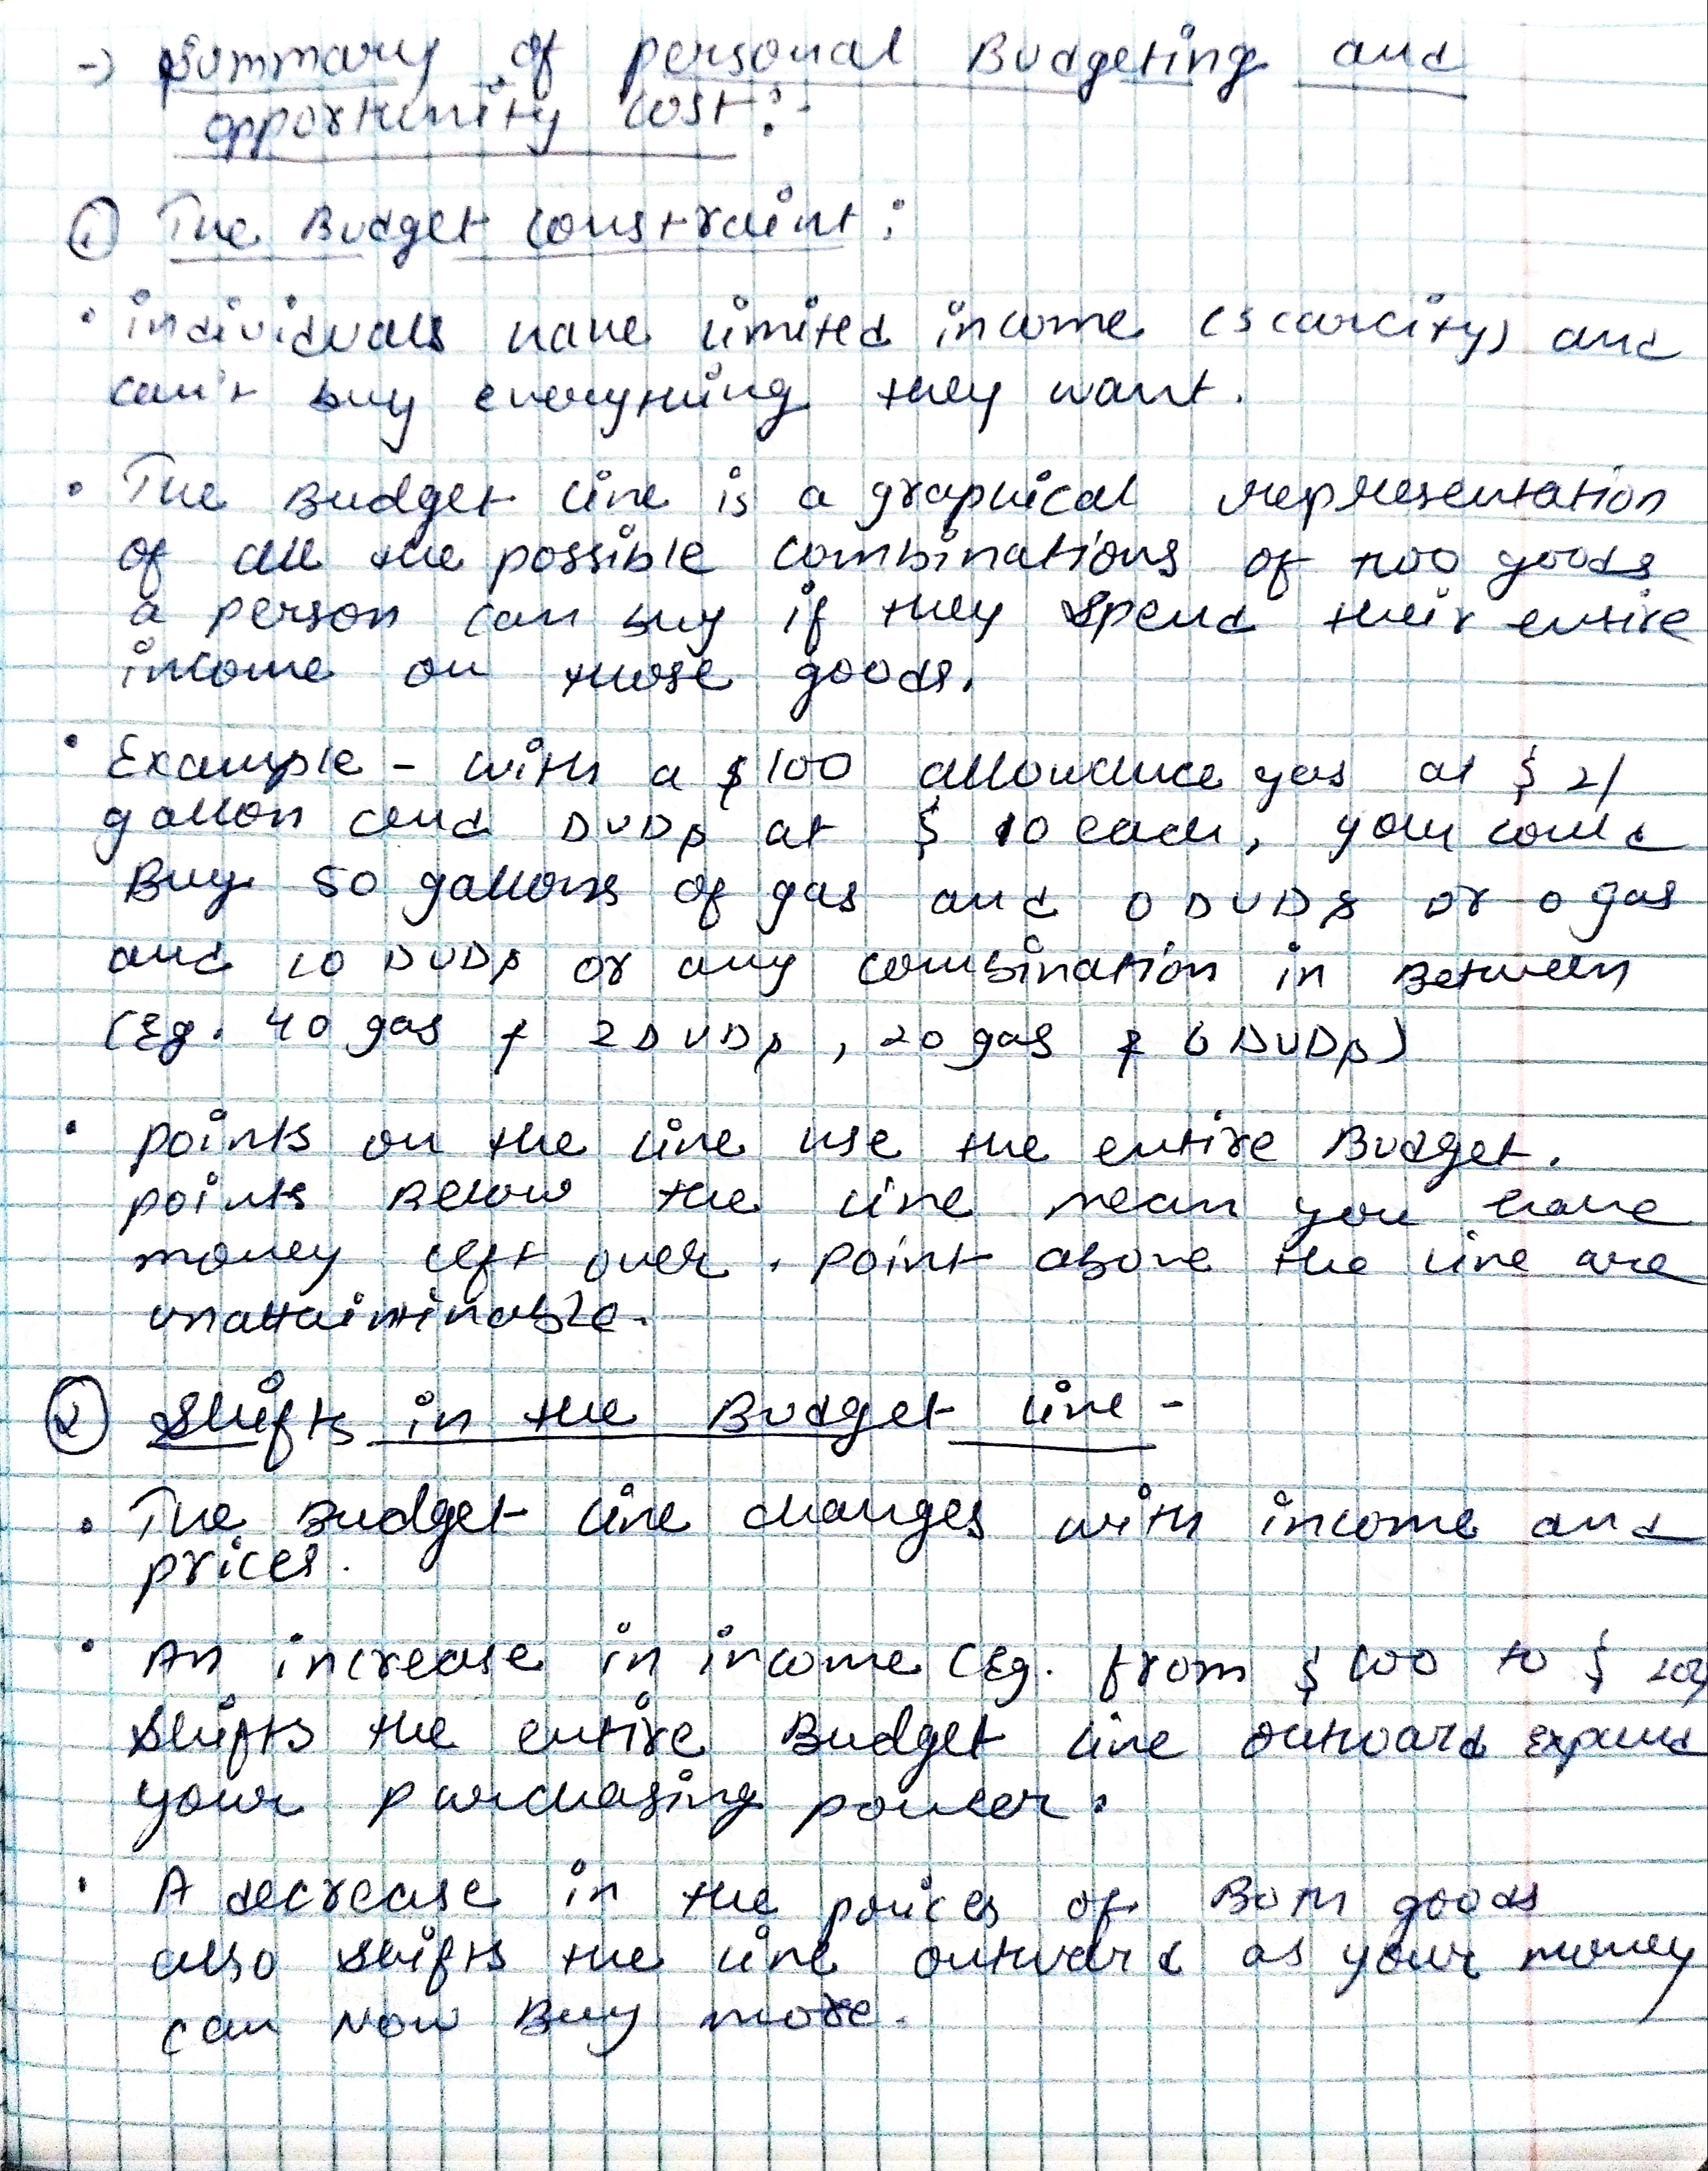 → Summary of personal Budgeting and
opportunity cost:-
① The Budget constraint:
• individuals have limited income (scarcity) and
can't buy everything they want.
• The Budget line is a graphical representation
of all the possible combinations of two goods
a person can buy if they spend their entire
income on those goods.
• Example - with a $100 allowance gas at $ 2/
gallon and DVDs at $ 10 each, you could
Buy 50 gallons of gas and 0 DVDs or 0 gas
and 10 DVDs or any combination in Between
(Eg. 40 gas & 2 DVDs, 20 gas & 6 DVDs)
• points on the line use the entire Budget.
points Below the line mean you have
money left over. point above the line are
unattaintinable.
② Shifts in the Budget line -
• The Budget line changes with income and
prices.
• An increase in income (Eg. from $ 100 to $ 200)
shifts the entire Budget line outward expand
your purchasing power.
• A decrease in the prices of Both goods
also shifts the line outward as your money
can Now Buy more.